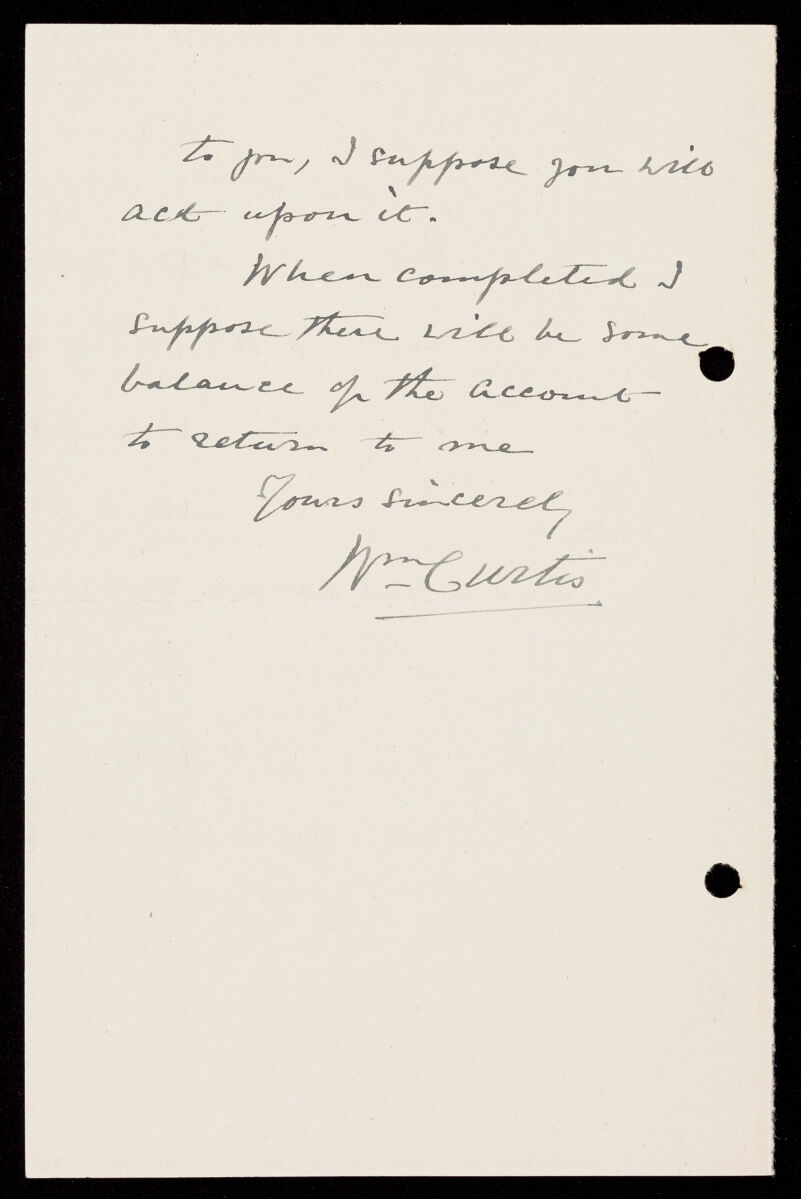 to you, I suppose you will
act upon it.
When completed I
suppose there will be some
balance of the account
to return to me
Yours sincerely
Wm Curtis